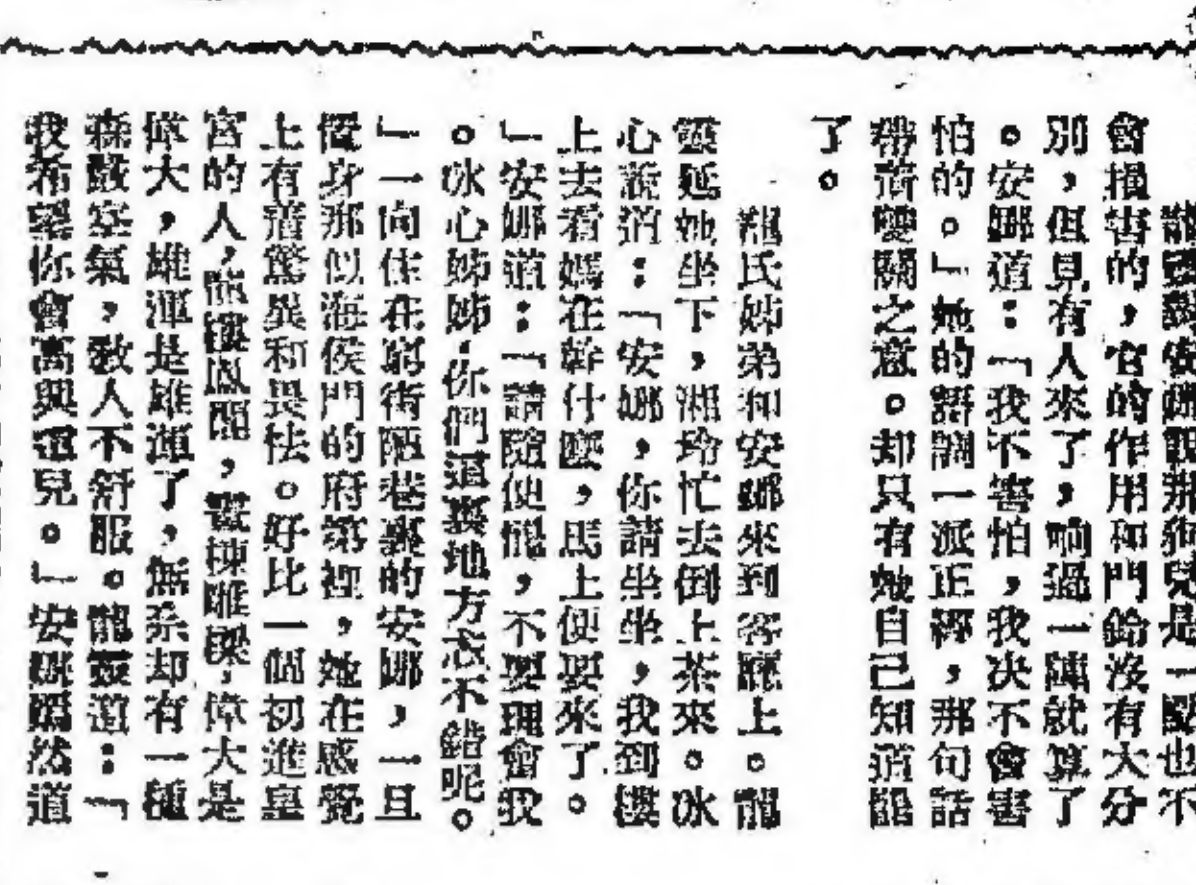 龍靈對安娜說那狗兒是一點也不
會損害的，它的作用和門鈴沒有大分
別，但見有人來了，嗬過一陣就算了
。安娜道：「我不害怕，我决不會害
怕的。」她的語調一派正經，那句話
帶着雙關之意。却只有她自己知道罷
了。
龍氏姊弟和安娜來到客廳上。龍
靈延她坐下，湘玲忙去倒上茶來。冰
心說道：「安娜，你請坐坐，我到樓
上去看媽在幹什麼，馬上便要來了。
」安娜道：「請隨便罷，不要理會我
。冰心姊姊，你們這裏地方忒不錯呢。
」一向住在窮街陋巷裏的安娜，一旦
置身那似海侯門的府第裡，她在感覺
上有着驚異和畏怯。好比一個初進皇
宮的人，龍樓鳳閣，畫棟雕樑，偉大是
偉大，雄渾是雄渾了，無奈却有一種
森嚴空氣，敎人不舒服。龍靈道：「
我希望你會高興這兒。」安娜嫣然道